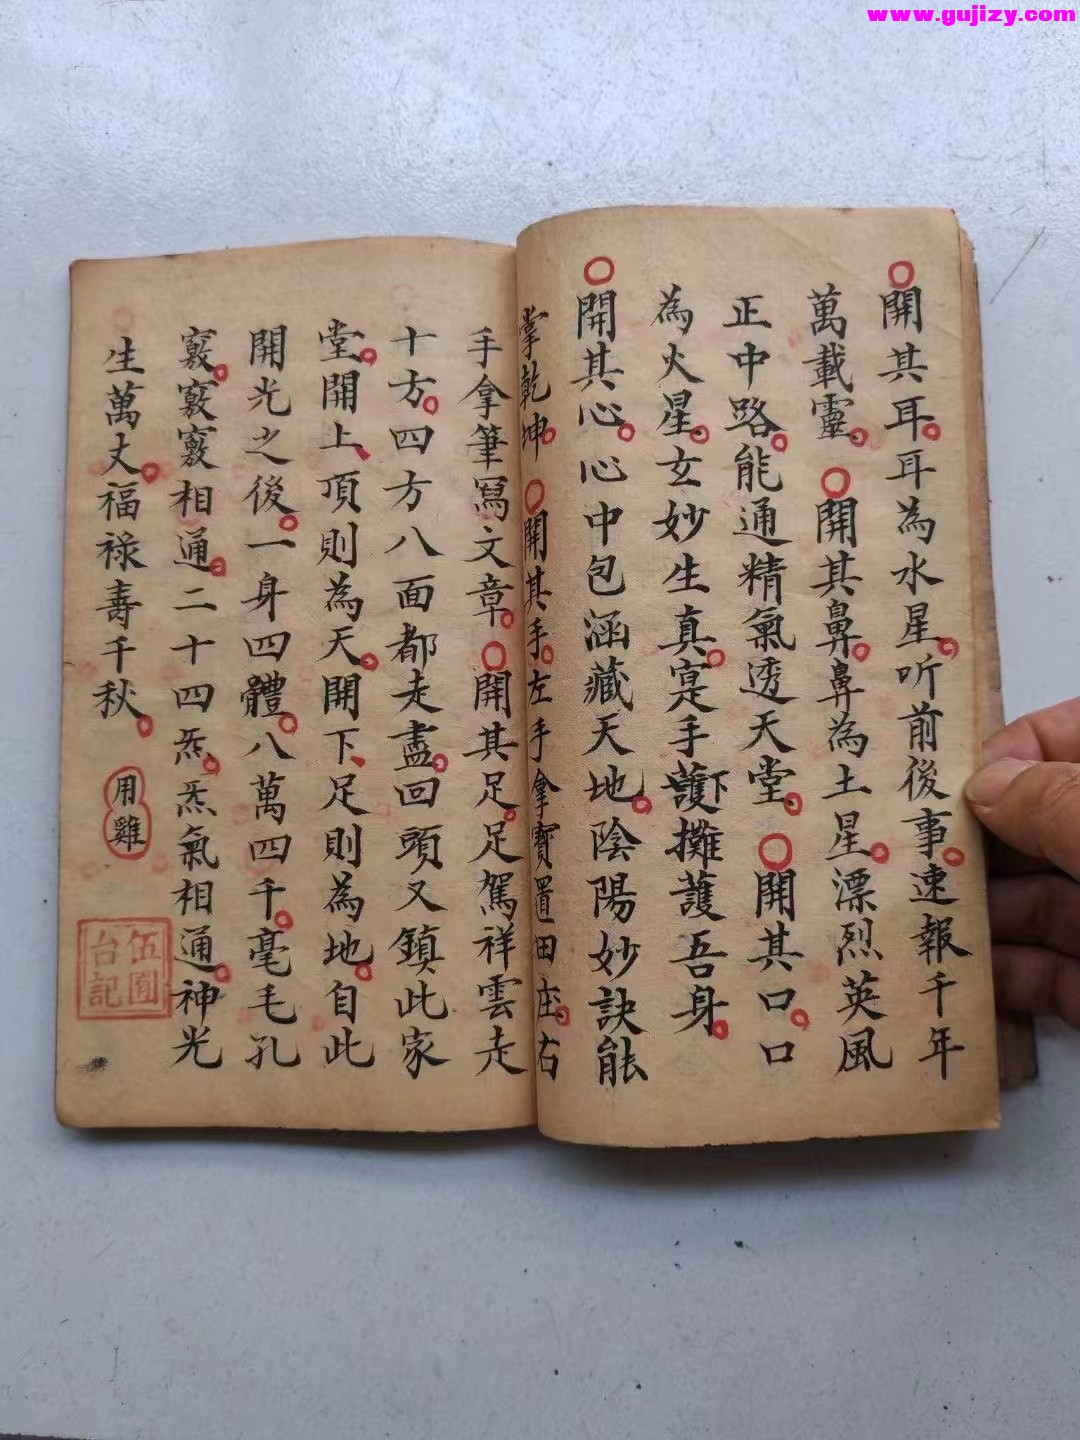 www.gujizy.com
○開其耳。耳為水星。听前後事。速報千年
萬載靈。○開其鼻。鼻為土星。漂烈英風
正中路。能通精氣透天堂。○開其口。口
為火星。玄妙生真。寔手護下攤護吾身。
○開其心。心中包涵藏天地。陰陽妙訣能
掌乾坤。○開其手。左手拿寶置田庄。右
手拿筆寫文章。○開其足。足駕祥雲走
十方。四方八面都走盡。回頭又鎮此家
堂。開上、頂則為天。開下、足則為地。自此
開光之後。一身四體。八萬四千。毫毛孔
竅。竅竅相通。二十四炁。炁氣相通。神光
生萬丈。福祿壽千秋。 用雞
伍圓
台記